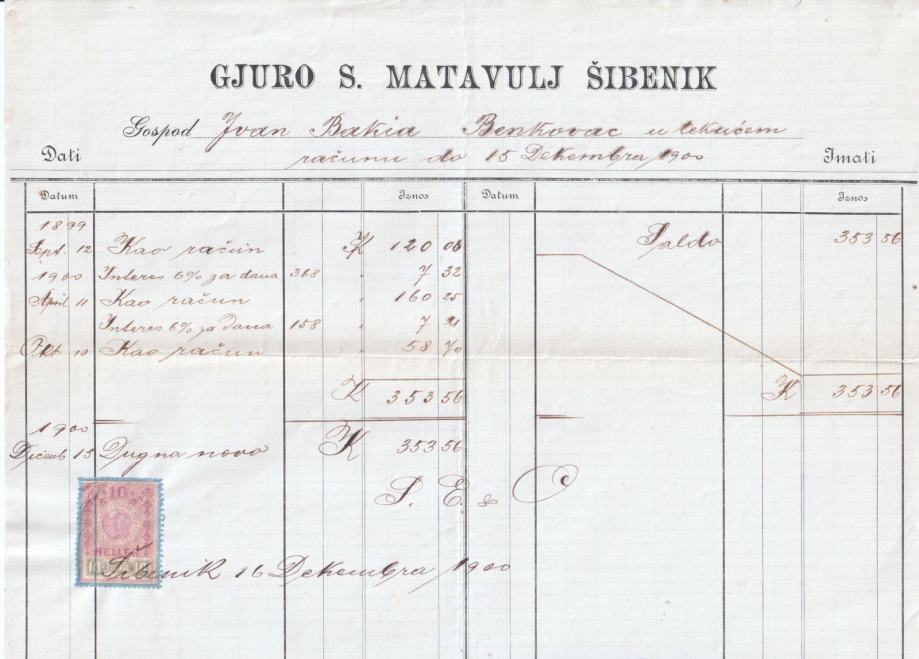 GJURO S. MATAVULJ ŠIBENIK
Gospod Jvan Bakia Benkovac u tekućem
Dati računu do 15 Dekembra 1900 Imati
Datum Iznos Datum Iznos
1899
Sept. 12 Kao račun K 120 08 Saldo 353 56
1900 Interes 6% za dana 368 " 7 32
April 11 Kao račun " 160 25
Interes 6% za dana 158 " 7 21
Okt 10 Kao račun " 58 70
K 353 56 K 353 56
1900
Decemb 15 Dugna novo K 353 56
S. E. & O
10
HELLER
Šibenik 16 Dekembra 1900